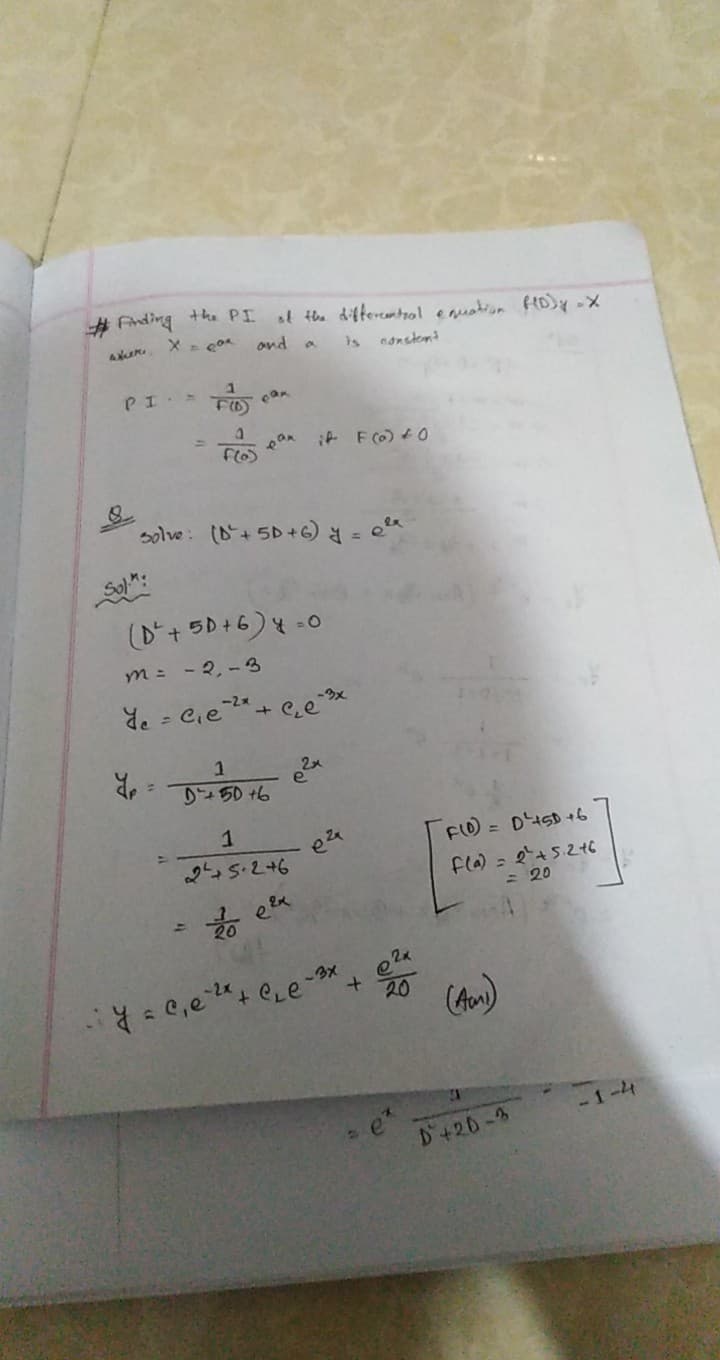 # Finding the PI of the differential equation f(D)y = X
where X = e^{ax} and a is constant
PI = \frac{1}{F(D)} e^{ax}
= \frac{1}{F(a)} e^{ax} if F(a) ≠ 0
Q
Solve: (D² + 5D + 6) y = e^{2x}
Solⁿ:
(D² + 5D + 6) y = 0
m = -2, -3
y_c = c₁e^{-2x} + c₂e^{-3x}
y_p = \frac{1}{D² + 5D + 6} e^{2x}
= \frac{1}{2² + 5·2 + 6} e^{2x}
[F(D) = D² + 5D + 6
F(a) = 2² + 5.2 + 6
= 20]
= \frac{1}{20} e^{2x}
∴ y = c₁e^{-2x} + c₂e^{-3x} + \frac{e^{2x}}{20} (Ans)
= e^x \frac{1}{D² + 2D - 3}
-1-4